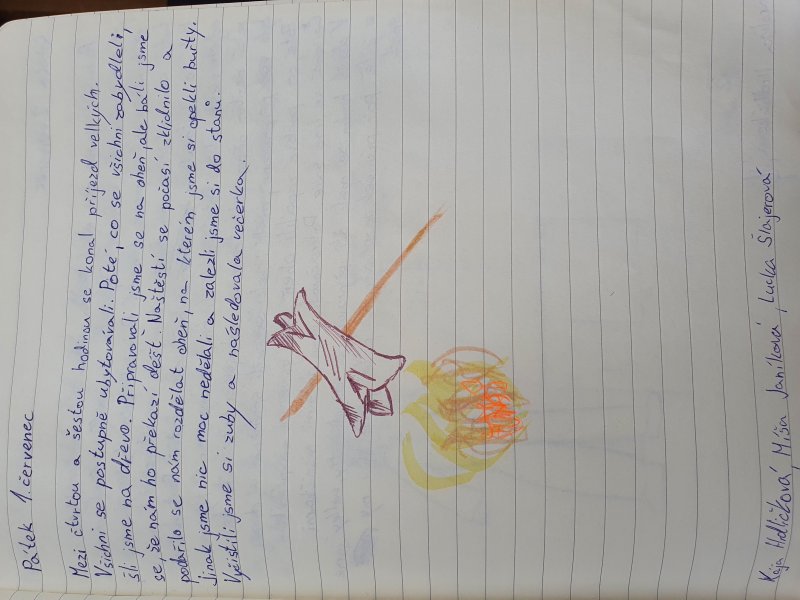 Pátek 1. červenec
Mezi čtvrtou a šestou hodinou se konal příjezd velkých.
Všichni se postupně ubytovávali. Poté, co se všichni zabydleli,
šli jsme na dřevo. Připravovali jsme se na oheň, ale báli jsme
se, že nám ho překazí déšť. Naštěstí se počasí zklidnilo a
podařilo se nám rozdělat oheň, na kterém jsme si opekli buřty.
Jinak jsme nic moc nedělali a zalezli jsme si do stanů.
Vyčistili jsme si zuby a následovala večerka.
Kája Hdličková, Míša Janíková, Lucka Šlajerová